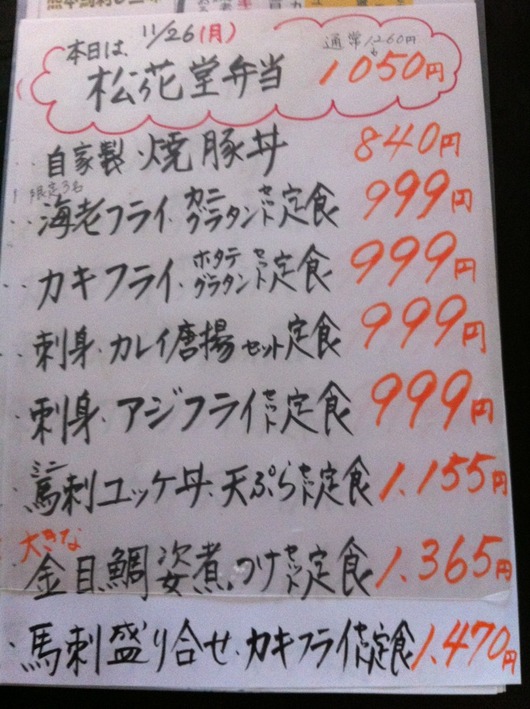 本日は 11/26(月)
通常1,260円
松花堂弁当 1050円
自家製・焼豚丼 840円
限定3名
海老フライ・カニグラタンセット定食 999円
カキフライ・ホタテグラタンセット定食 999円
刺身・カレイ唐揚セット定食 999円
刺身・アジフライセット定食 999円
ミニ
馬刺ユッケ丼、天ぷらセット定食 1,155円
大きな
金目鯛姿煮つけセット定食 1,365円
馬刺盛り合せ・カキフライセット定食 1,470円